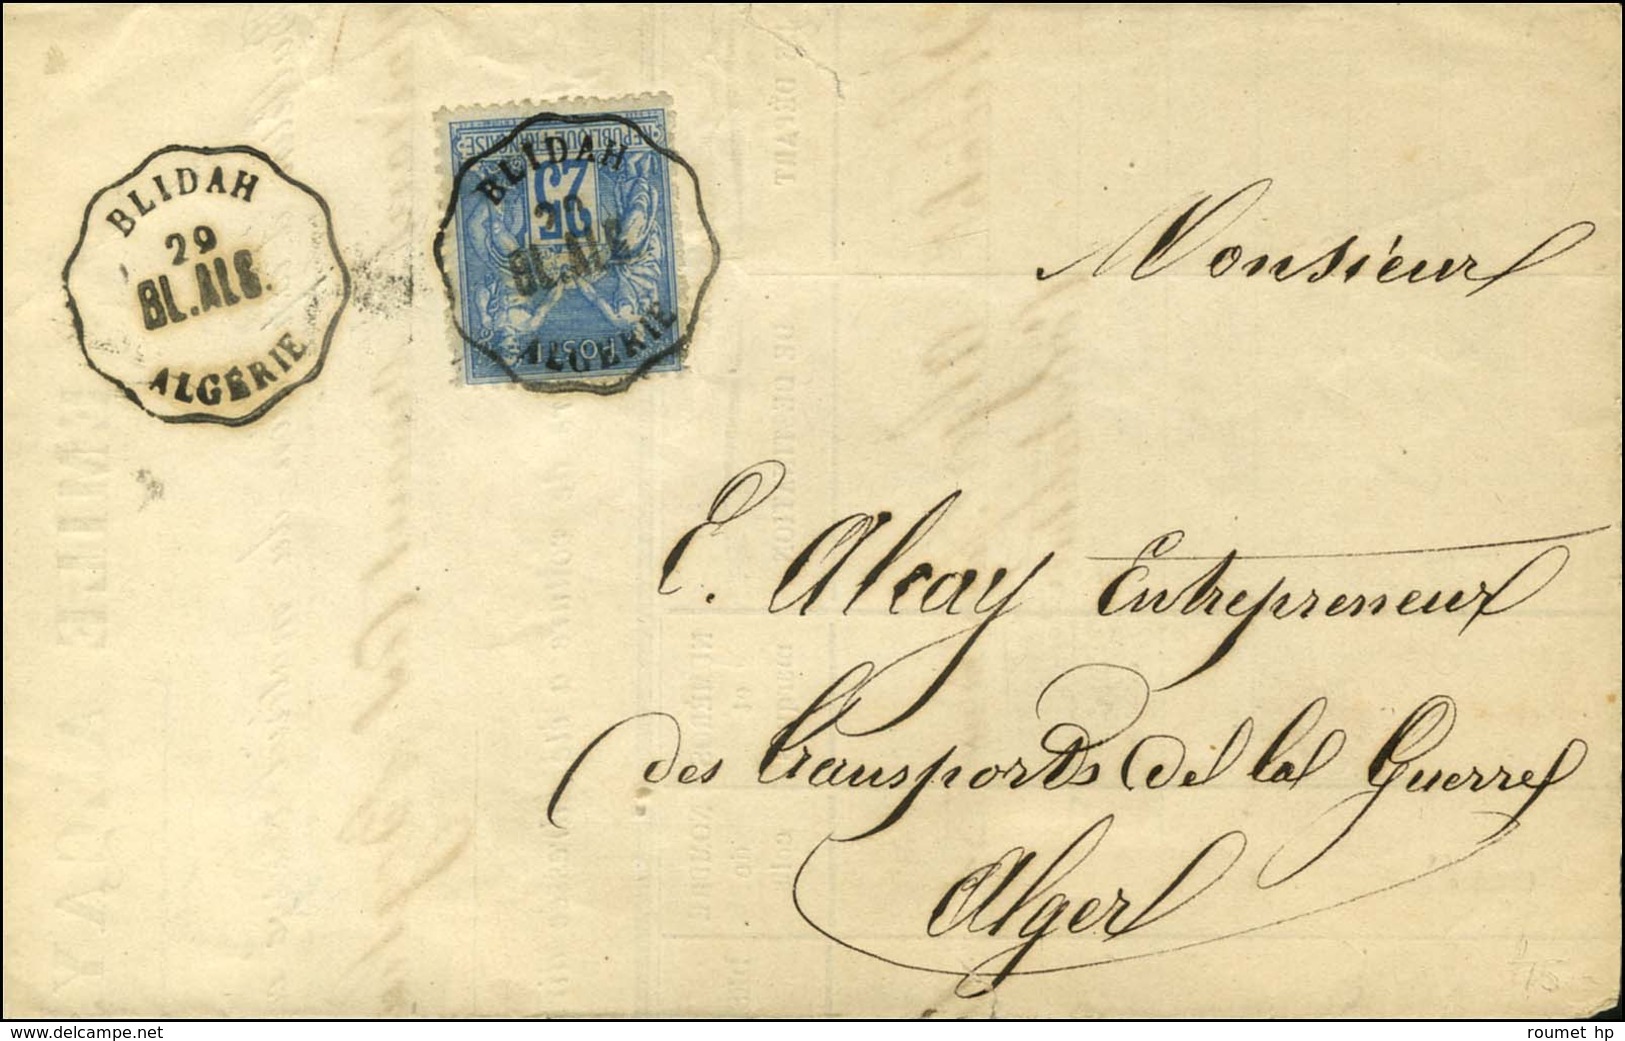 BLIDAH
29
BL.ALG.
ALGÉRIE
REPUBLIQUE FRANÇAISE
25
POSTE
BLIDAH
BL.ALG
ALGERIE
Monsieur
E. Alcay Entrepreneur
des transports de la Guerre
Alger
EMILE ALCAY
www.delcampe.net
roumet hp